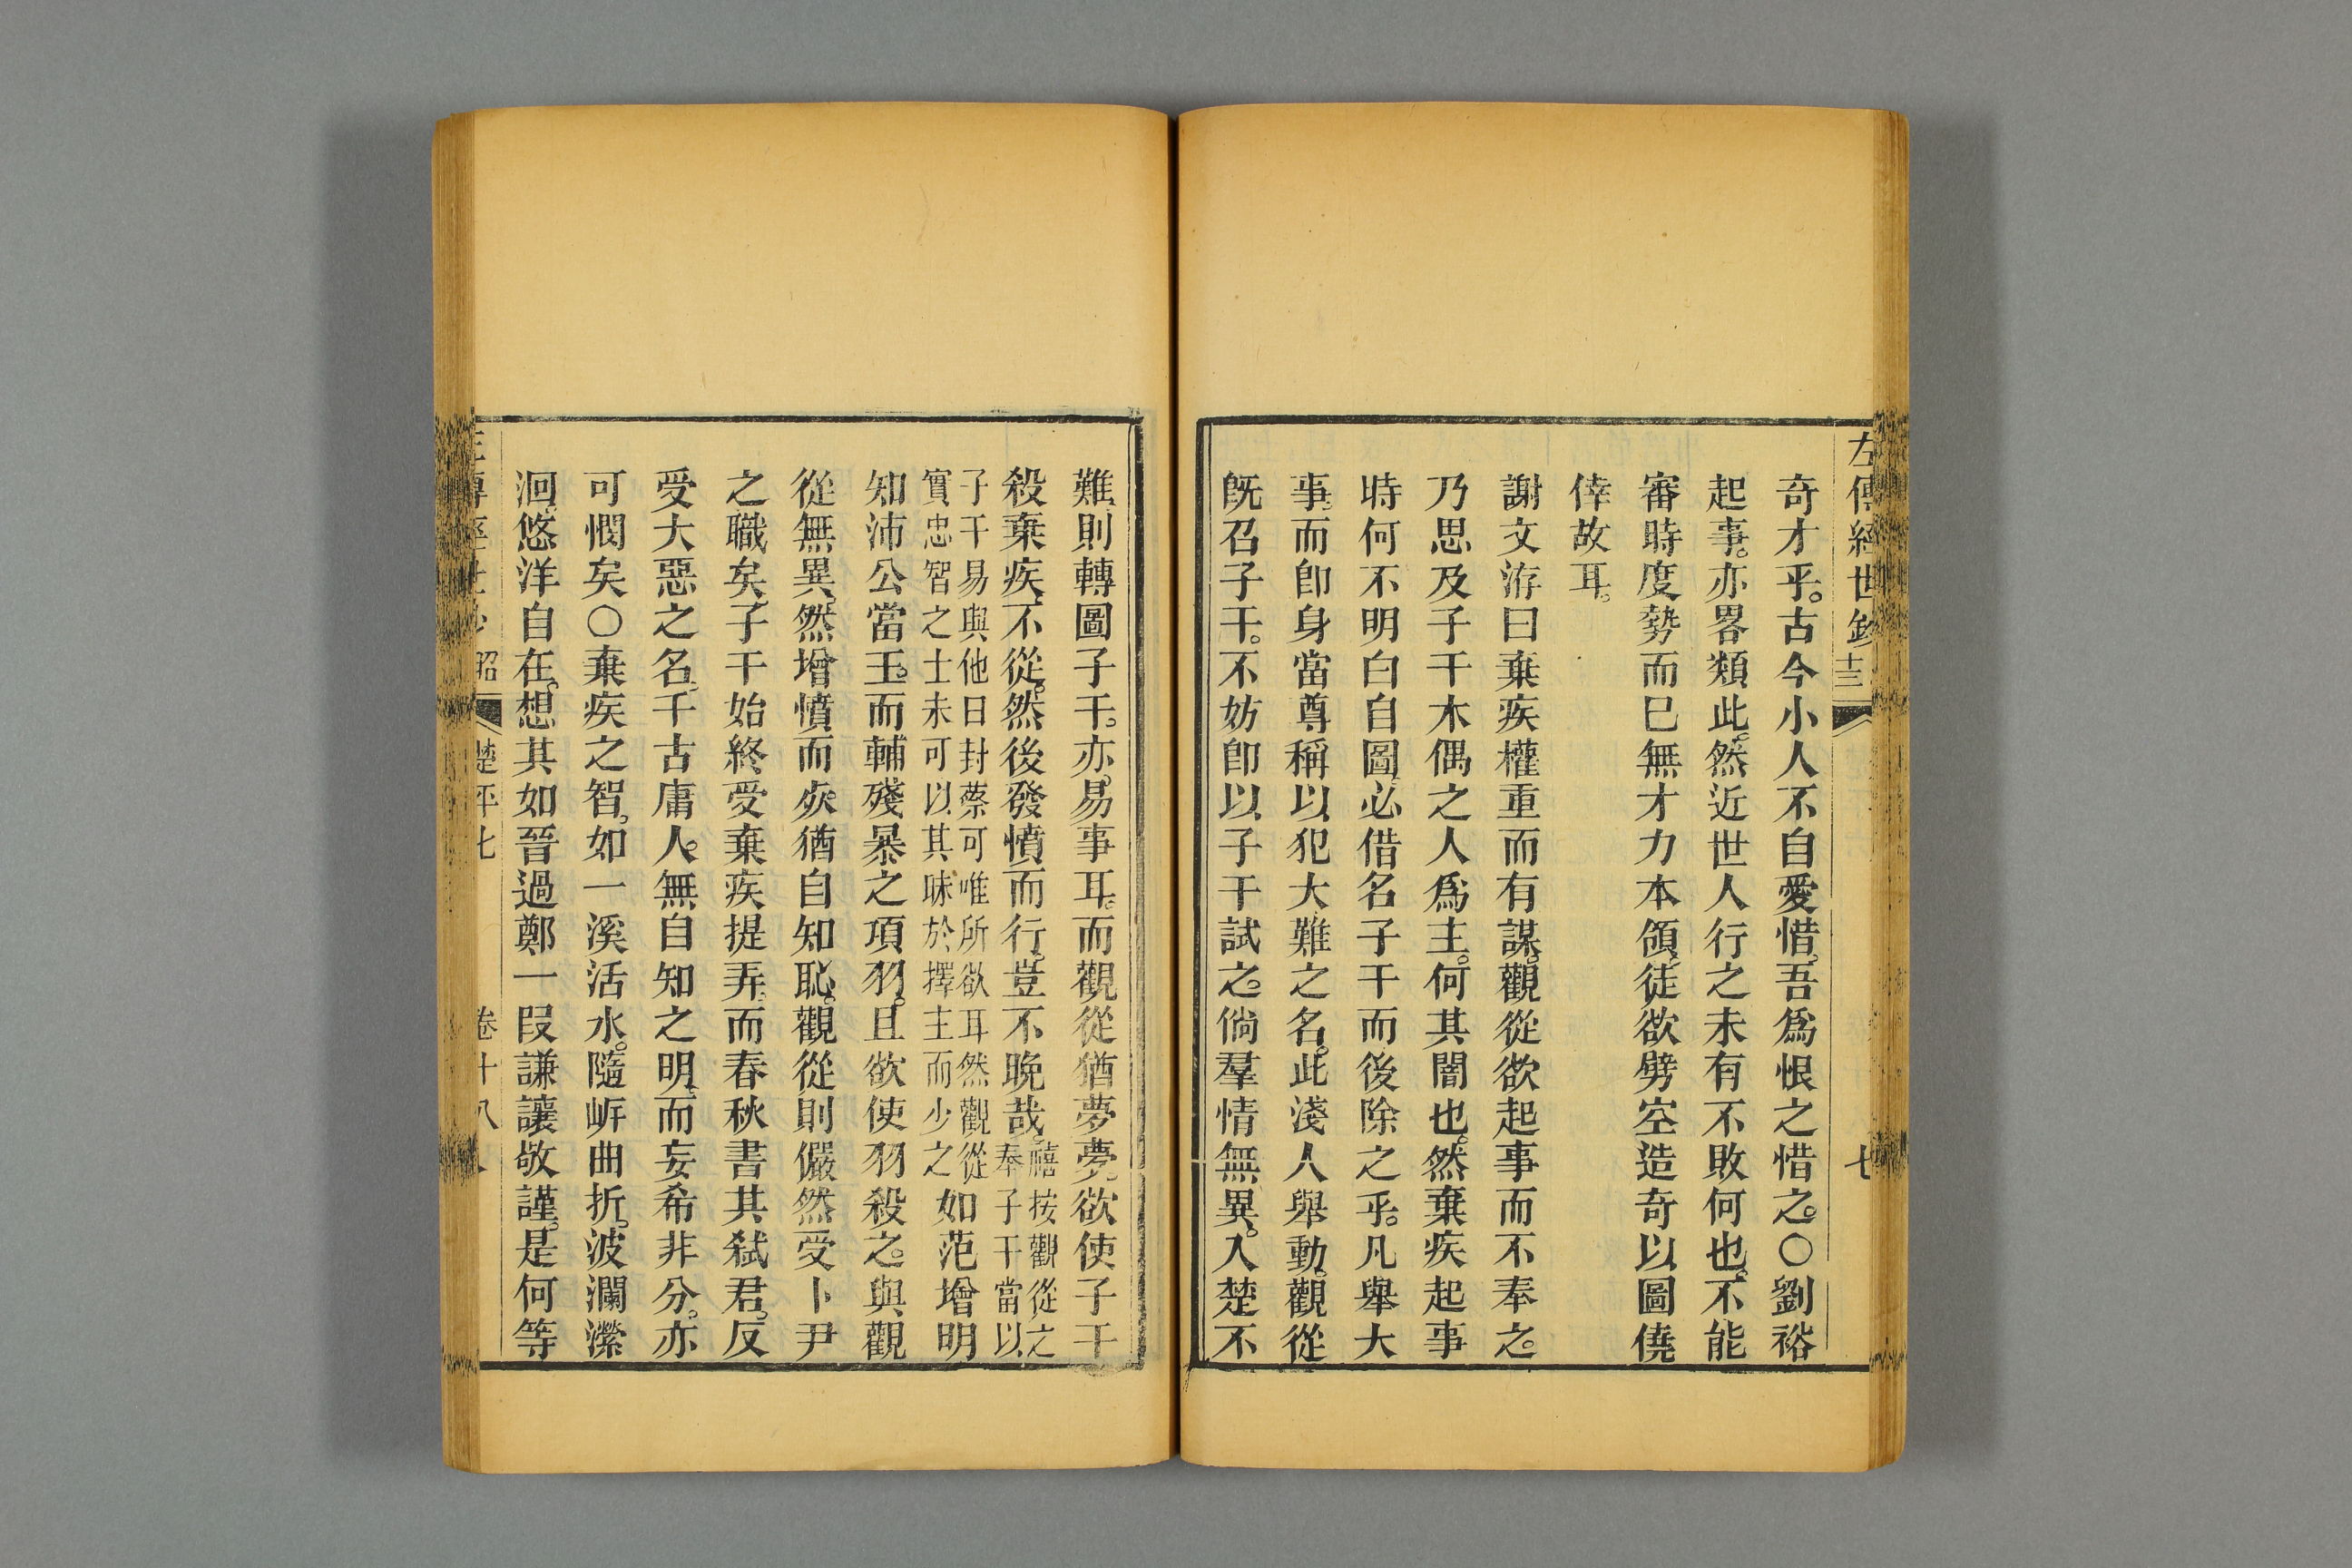 左傳經世鈔 七
奇才乎。古今小人不自愛惜。吾爲恨之惜之。○劉裕
起事。亦畧類此。然近世人行之未有不敗何也。不能
審時度勢而已無才力本領。徒欲劈空造奇以圖僥
倖故耳。
謝文洊曰棄疾權重而有謀。觀從欲起事而不奉之。
乃思及子干木偶之人爲主。何其闇也。然棄疾起事
時何不明白自圖。必借名子干而後除之乎。凡舉大
事。而卽身當尊稱以犯大難之名。此淺人舉動。觀從
旣召子干。不妨卽以子干試之。倘羣情無異。入楚不
難。則轉圖子干。亦易事耳。而觀從猶夢夢欲使子干
殺棄疾。不從。然後發憤而行。豈不晩哉。禧按觀從之奉子干當以
子干易與他日封蔡可唯所欲耳然觀從實忠智之士未可以其昧於擇主而少之如范增明
知沛公當王。而輔殘暴之項羽。且欲使羽殺之。與觀
從無異。然增憤而疾。猶自知恥。觀從則儼然受卜尹
之職矣。子干始終受棄疾提弄。而春秋書其弒君。反
受大惡之名。千古庸人。無自知之明。而妄希非分。亦
可憫矣○棄疾之智。如一溪活水。隨㟁曲折。波瀾瀠
洄。悠洋自在。想其如晉過鄭一段謙讓敬謹。是何等
昭 楚平七 卷十八